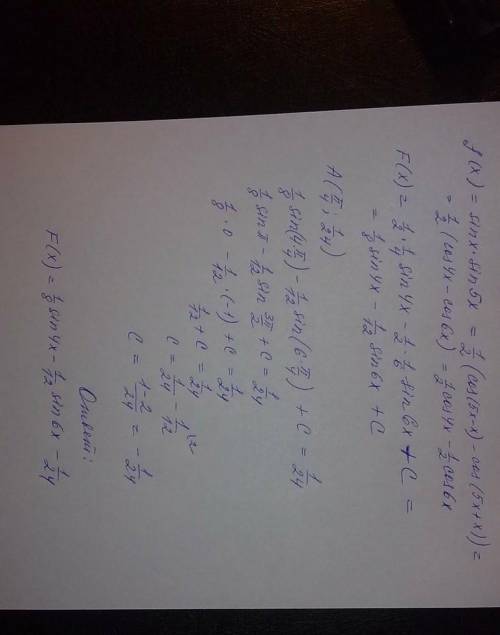 f(x) = sinx·sin5x = 1/2 (cos(5x-x) - cos(5x+x)) =
= 1/2 (cos4x - cos6x) = 1/2 cos4x - 1/2 cos6x
F(x) = 1/2 · 1/4 sin4x - 1/2 · 1/6 sin6x + C =
= 1/8 sin4x - 1/12 sin6x + C
A(π/4; 1/24)
1/8 sin(4 π/4) - 1/12 sin(6 π/4) + C = 1/24
1/8 sinπ - 1/12 sin 3π/2 + C = 1/24
1/8 · 0 - 1/12 · (-1) + C = 1/24
1/12 + C = 1/24
C = 1/24 - 1/12 ^(2
C = 1-2/24 = - 1/24
Ответ:
F(x) = 1/8 sin4x - 1/12 sin6x - 1/24